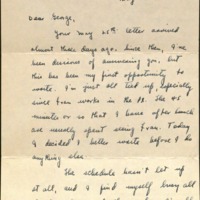 Dear George,
Your May 25th letter arrived
almost three days ago. Since then, I've
been desirous of answering you, but
this has been my first opportunity to
write. I'm just all tied up, especially
since Fran works in the PX. The 45
minutes or so that I have at lunch
are usually spent seeing Fran. Today
I decided I better write before I do
anything else.
The schedule hasn't let up
at all, and I find myself busy all